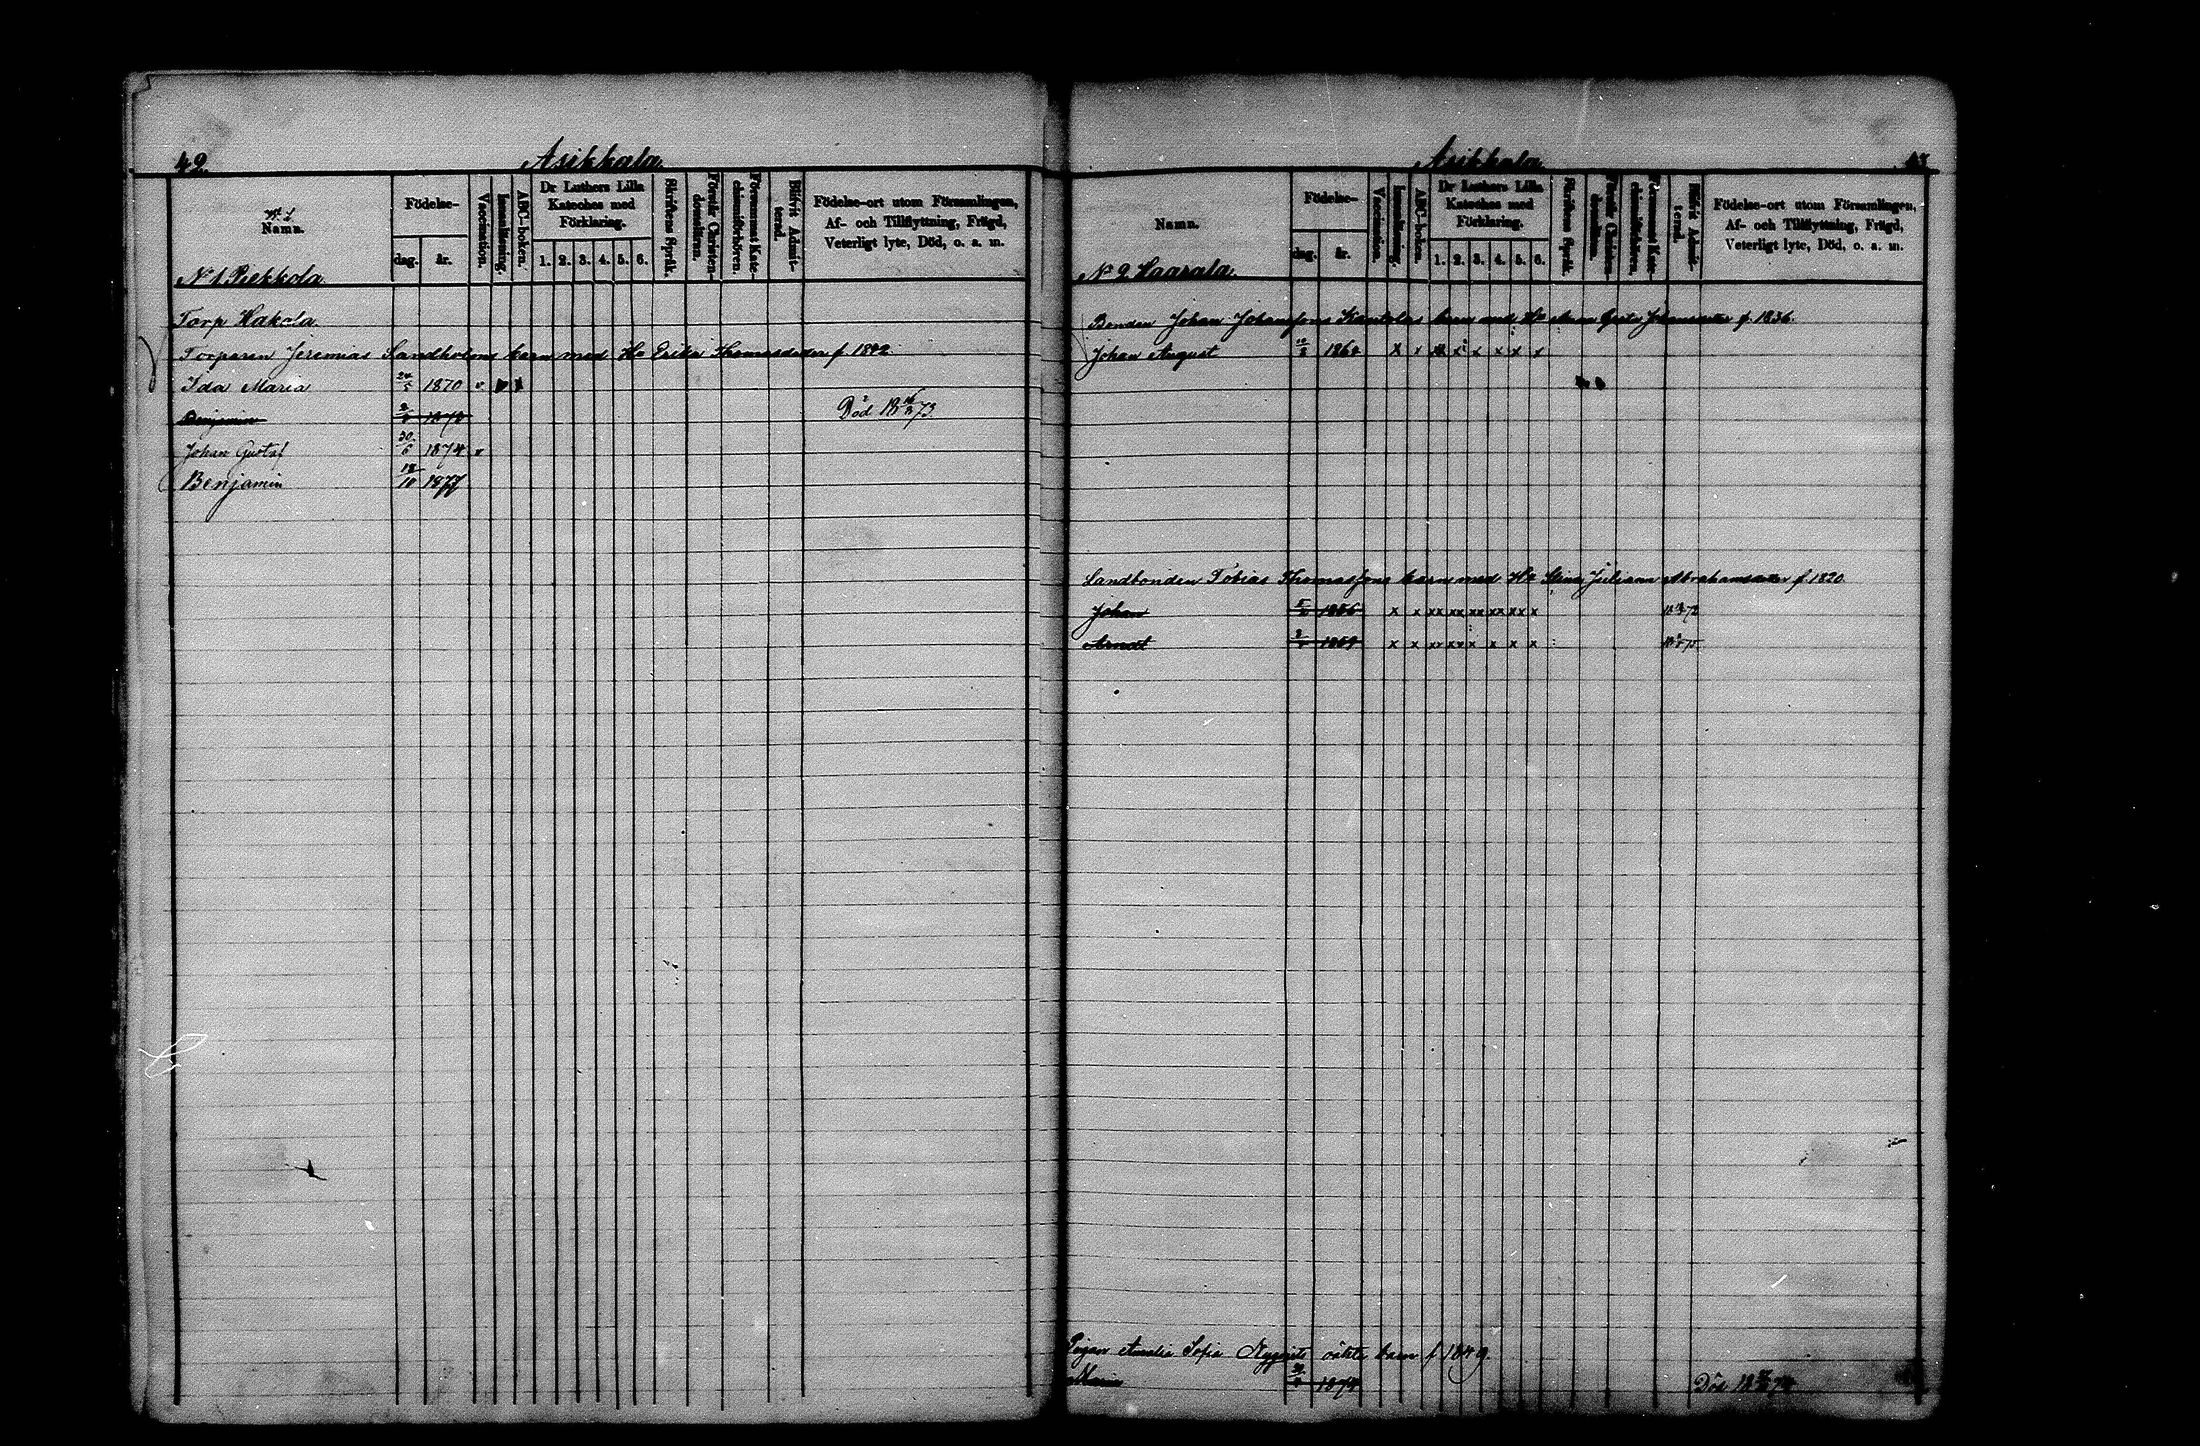 42.
Asikkala
Namn.
Födelse-
dag.
år.
Vaccination.
Innanläsning.
ABC-boken.
Dr Luthers Lilla Kateches med Förklaring.
1. 2. 3. 4. 5. 6.
Skriftens Språk.
Förstår Christendomsläran.
Försummat Katechismiförhören.
Blifvit Admitterad.
Födelse-ort utom Församlingen,
Af- och Tillflyttning, Frägd,
Veterligt lyte, Död, o. a. m.
No 1 Pekkola
Torp Hakola
Torparen Jeremias Sandholms barn med Hu Erika Thomasdotter f 1842
Ida Maria 1870
Benjamin Död
Johan Gustaf 30/6 1874
Benjamin 18/10 1877
Asikkala
Namn.
Födelse-
dag.
år.
Vaccination.
Innanläsning.
ABC-boken.
Dr Luthers Lilla Kateches med Förklaring.
1. 2. 3. 4. 5. 6.
Skriftens Språk.
Förstår Christendomsläran.
Försummat Katechismiförhören.
Blifvit Admitterad.
Födelse-ort utom Församlingen,
Af- och Tillflyttning, Frägd,
Veterligt lyte, Död, o. a. m.
No 2 Haarala
Bonden Johan Johanssons barn med Hu Anna Greta Johansdotter f. 1836.
Johan August x x x x x x x
Landbonden Tobias Thomassons barn med Hu Stina Juliana Abrahamsdotter f. 1820
Johan 1856 x x xx xx xx xx xx x
x x xx xx x x x x
Pigan Amalia Sofia oäkta barn f 1849.
Maria 1874 Död